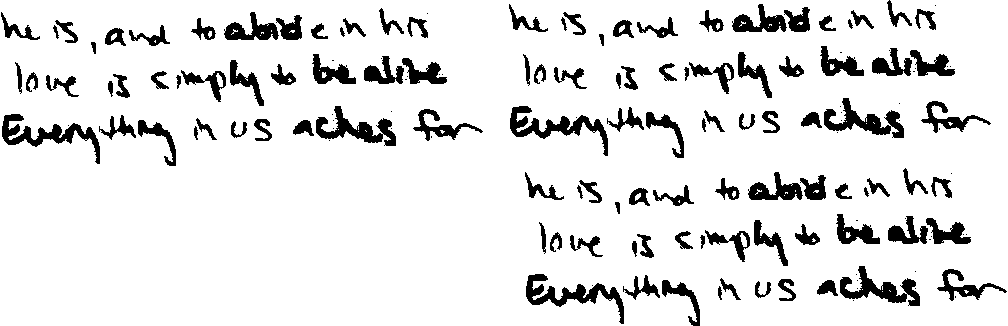 he is, and to abide in his
love is simply to be alive
Everything in us aches for
he is, and to abide in his
love is simply to be alive
Everything in us aches for
he is, and to abide in his
love is simply to be alive
Everything in us aches for